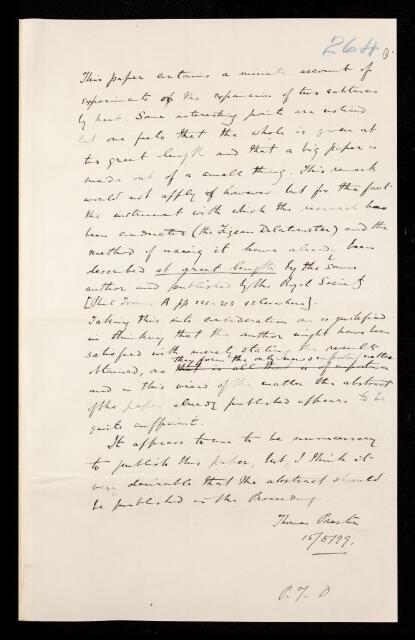 264
This paper contains a minute account of
experiments on the expansion of two substances
by heat. Some interesting points are noticed
but one feels that the whole is given at
too great length and that a big paper is
made out of a small thing. This remark
would not apply however but for the fact
the instrument with which the research has
been conducted (the Fizeau Dilatometer) and the
method of using it have already been
described at great length by the same
author and published by the Royal Society
[Phil Trans A pp
Taking this into consideration one is justified
in thinking that the author might have been
satisfied with merely stating the results
they form the only new & important matter
obtained, as that is all that is of importance
and in this view of the matter the abstract
of the paper already published appears to be
quite sufficient.
It appears to me to be unnecessary
to publish this paper, but, I think it
very desirable that the abstract should
be published in the Proceedings.
Thomas Preston
15/5/99.
P. T. O